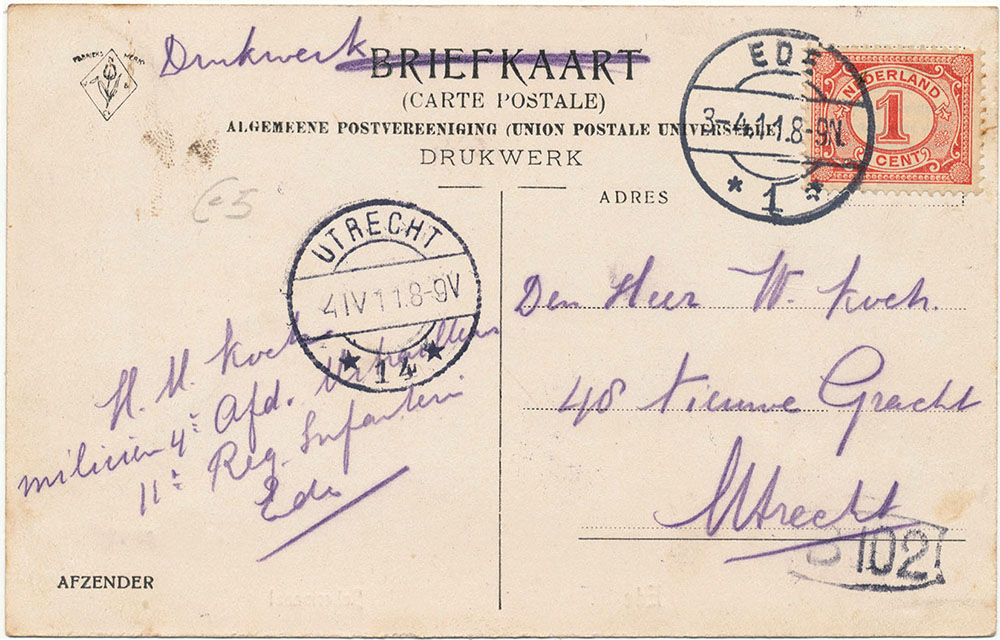 FABRIEKS MERK
Drukwerk
BRIEFKAART
(CARTE POSTALE)
ALGEMEENE POSTVEREENIGING (UNION POSTALE UNIVERSELLE)
DRUKWERK
EDE
3-4.11.8-9N.
1
NEDERLAND
1
CENT
ADRES
UTRECHT
4IV11.8-9V
14
Den Heer W. Koch.
48 Nieuwe Gracht
Utrecht
102
H. M. Koch
milicien 4e Afd.
11e Reg. Infanterie
Ede
AFZENDER